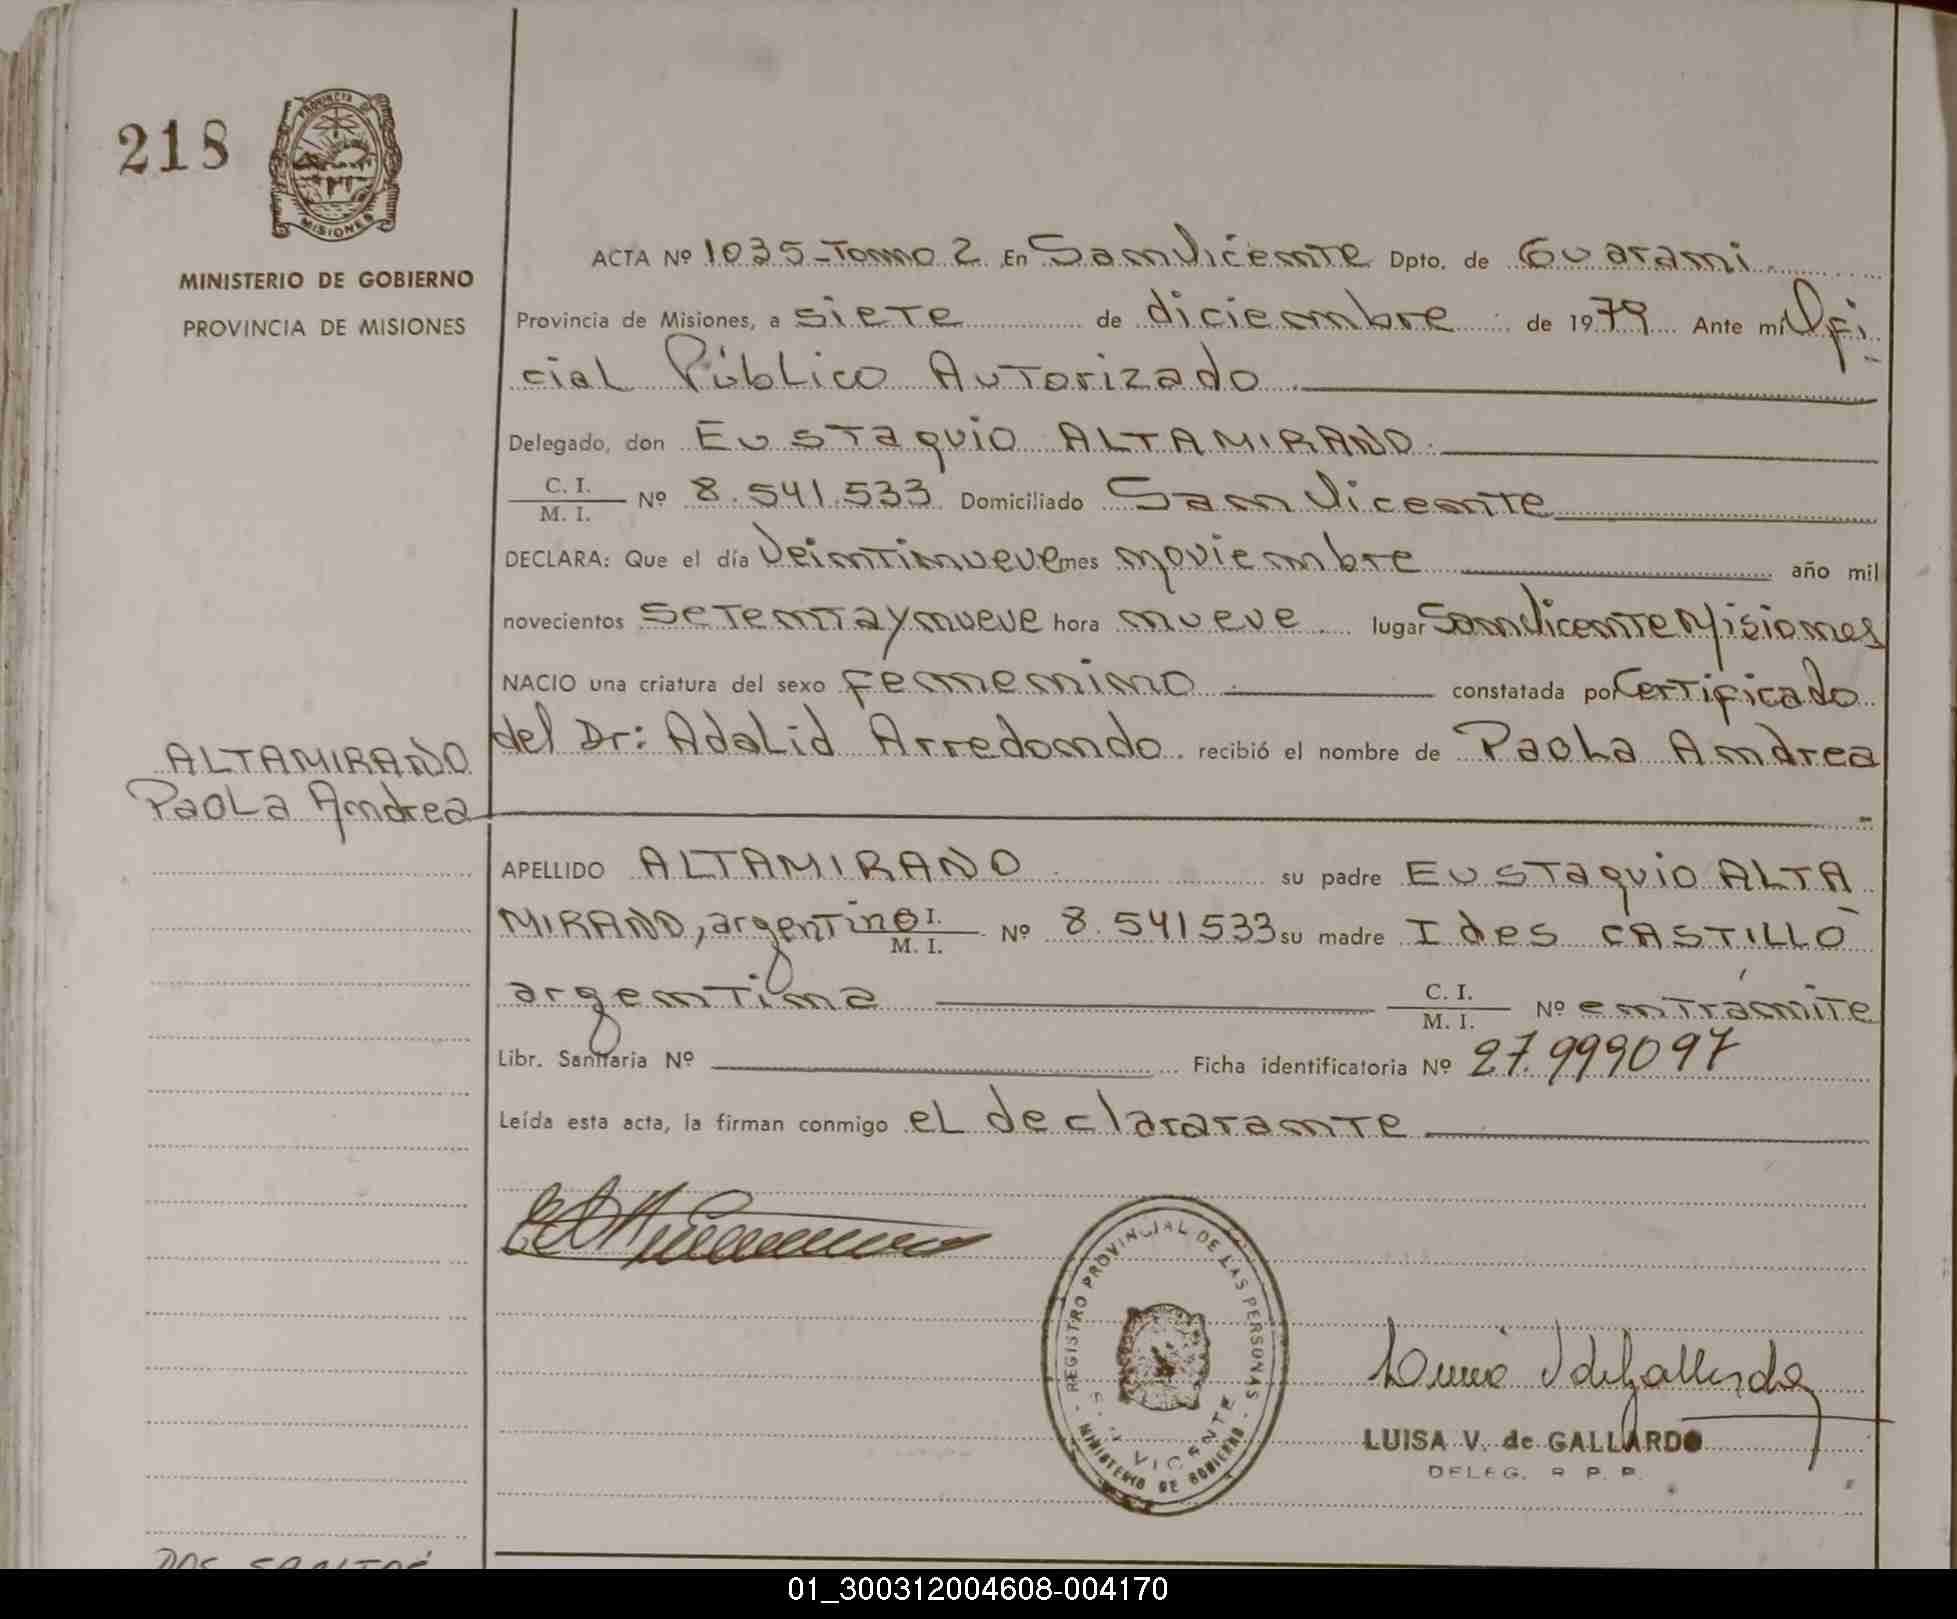 218
PROVINCIA DE
MISIONES
MINISTERIO DE GOBIERNO
PROVINCIA DE MISIONES
ACTA Nº 1035-Tomo 2 En San Vicente Dpto. de Guarani
Provincia de Misiones, a siete de diciembre de 1979 Ante mí Ofi-
cial Público Autorizado
Delegado, don Eustaquio ALTAMIRANO
C. I.
M. I. Nº 8.541.533 Domiciliado San Vicente
DECLARA: Que el día Veintinueve mes noviembre año mil
novecientos setenta y nueve hora nueve lugar San Vicente Misiones
NACIO una criatura del sexo femenino constatada por Certificado
del Dr: Adalid Arredondo recibió el nombre de Paola Andrea
ALTAMIRANO
Paola Andrea
APELLIDO ALTAMIRANO su padre Eustaquio ALTA-
MIRANO, argentino C. I.
M. I. Nº 8.541533 su madre Ides CASTILLO
argentina C. I.
M. I. Nº en trámite
Libr. Sanitaria Nº Ficha identificatoria Nº 27.999097
Leída esta acta, la firman conmigo el declararante
REGISTRO PROVINCIAL DE LAS PERSONAS
VICENTE
- MINISTERIO DE GOBIERNO -
LUISA V. de GALLARDO
DELEG. R. P. P.
DOS SANTOS
01_300312004608-004170